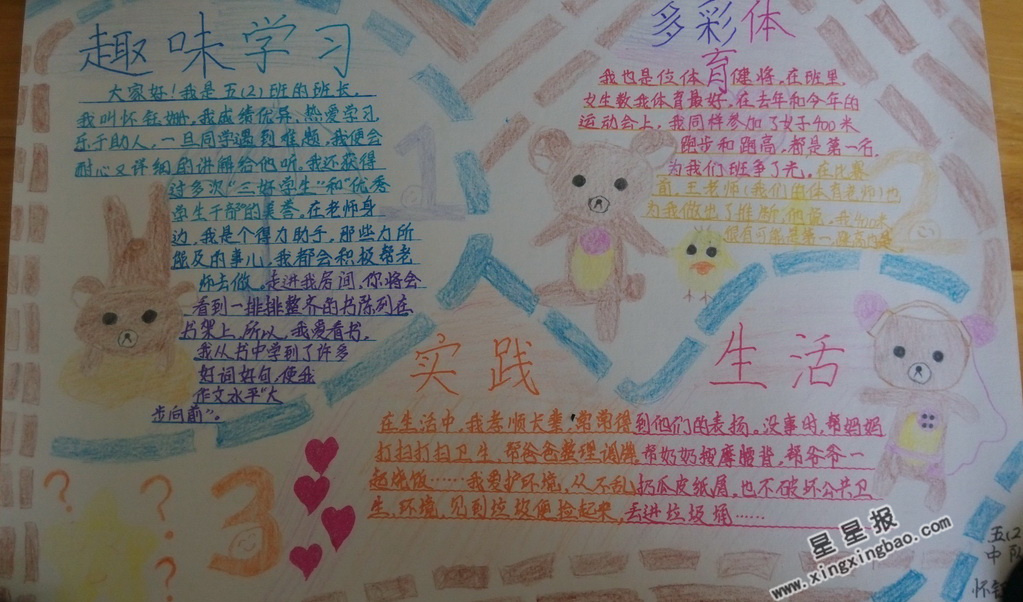 趣味学习
大家好！我是五(2)班的班长，
我叫怀钰姗。我成绩优异，热爱学习，
乐于助人，一旦同学遇到难题，我便会
耐心又详细的讲解给他听。我还获得
过多次“三好学生”和“优秀
学生干部”的美誉。在老师身
边，我是个得力助手，那些力所
能及的事儿，我都会积极帮老
师去做。走进我房间，你将会
看到一排排整齐的书陈列在
书架上，所以，我爱看书。
我从书中学到了许多
好词好句，使我
作文水平“大
步向前”。
多彩体
育
我也是位体育健将。在班里，
女生数我体育最好。在去年和今年的
运动会上，我同样参加了女子400米
跑步和跳高，都是第一名，
为我们班争了光。在比赛
前，王老师(我们的体育老师)也
为我做出了推断，他说，我400米
很有可能是第一，跳高也是。
1
2
实践 生活
在生活中，我孝顺长辈，常常得到他们的表扬。没事时，帮妈妈
打扫打扫卫生，帮爸爸整理，帮奶奶按摩腰背，帮爷爷一
起烧饭……我爱护环境，从不乱扔瓜皮纸屑，也不破坏公共卫
生，环境，见到垃圾便捡起来，丢进垃圾桶……
? ? 3
?
五(2
中队
怀钰
星星报
www.xingxingbao.com